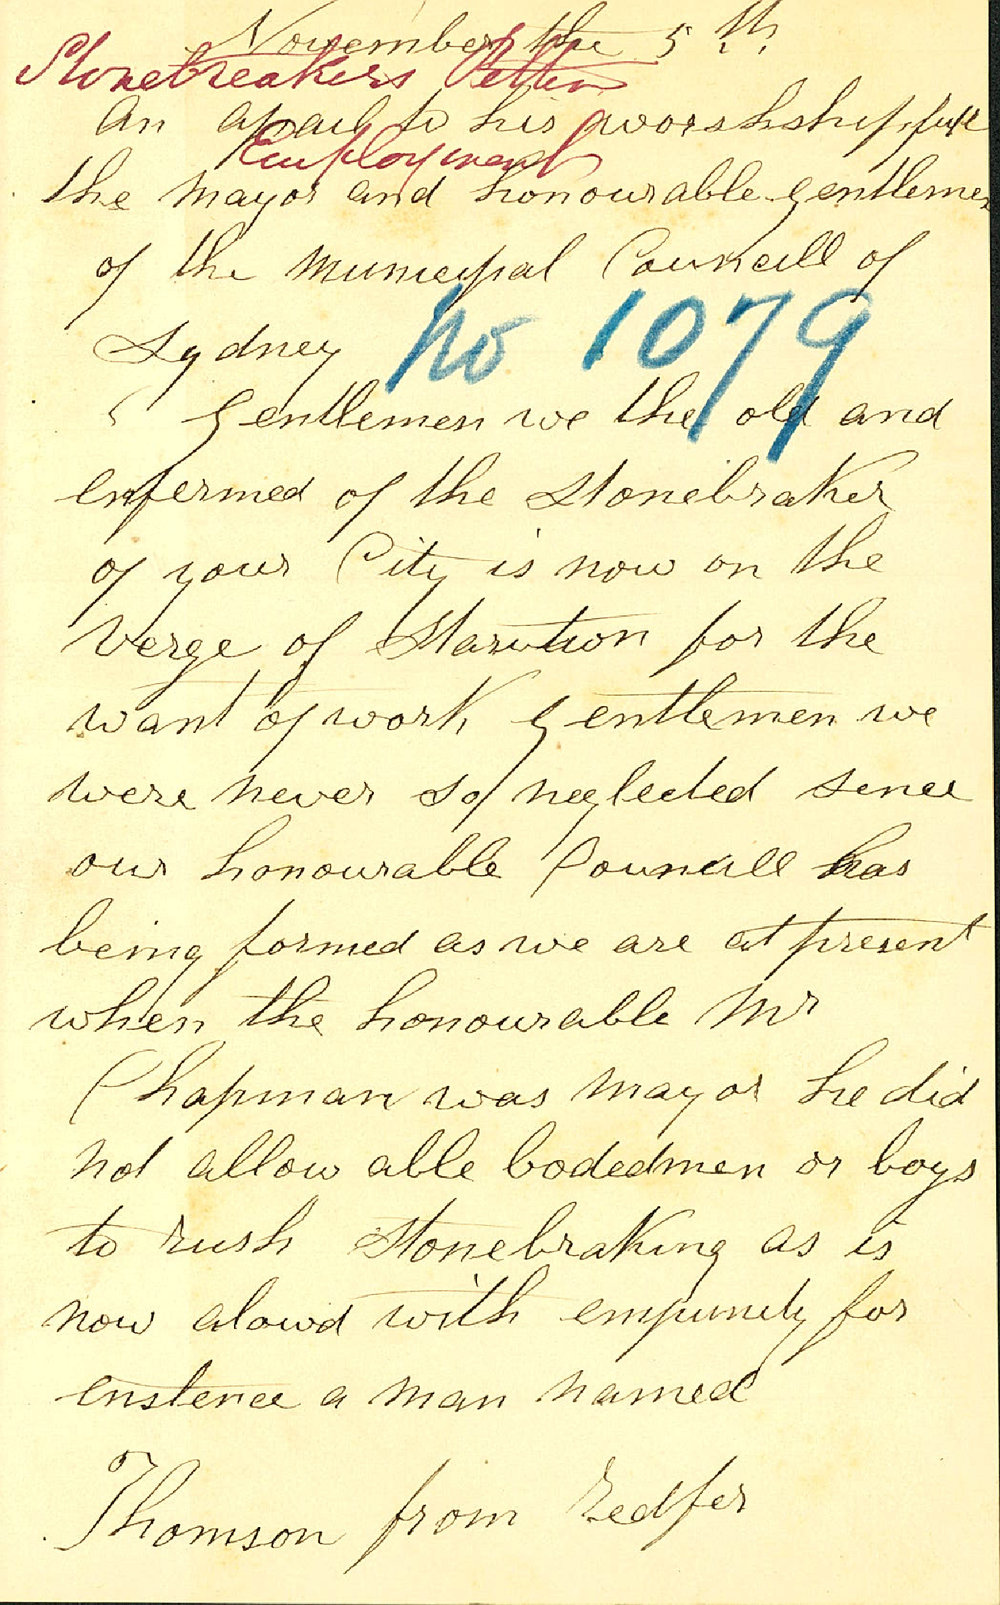 November the 5th
Stonebreakers Petition
An apail to his worshshipfull
Employment
the mayor and honourable gentlemen
of the municipal Councill of
Sydney
No 1079
Gentlemen we the old and
enfermed of the stonebraker
of your City is now on the
verge of starvtion for the
want of work gentlemen we
were never so neglected sence
our honourable Councill has
being formed as we are at present
when the honourable Mr
Chapman was mayor he did
not allow able bodedmen or boys
to rush stonebraking as is
now alowd with empunity for
enstence a man named
Thomson from Redfer